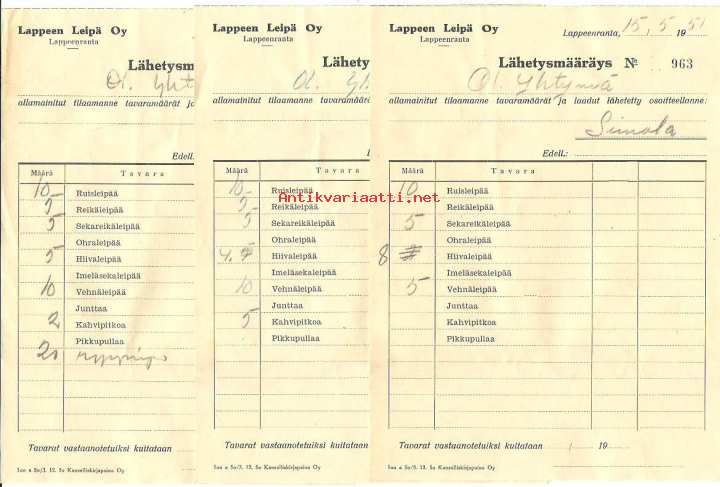 Lappeen Leipä Oy
Lappeenranta
Lähetysm
Ol. Yht
allamainitut tilaamanne tavaramäärät ja
Edell.
Määrä Tavara
10 Ruisleipää
5 Reikäleipää
5 Sekareikäleipää
Ohraleipää
5 Hiivaleipää
Imeläsekaleipää
10 Vehnäleipää
Junttaa
2 Kahvipitkoa
Pikkupullaa
20
Tavarat vastaanotetuiksi kuitataan
5oo a 5o/3. 12. 5o Kansalliskirjapaino Oy
Lappeen Leipä Oy
Lappeenranta
Lähety
Ol. Yh
allamainitut tilaamanne tavaramäärät
Määrä Tavara
10 Ruisleipää
5 Reikäleipää
5 Sekareikäleipää
Ohraleipää
4. Hiivaleipää
Imeläsekaleipää
10 Vehnäleipää
Junttaa
5 Kahvipitkoa
Pikkupullaa
Tavarat vastaanotetuiksi kuitataan
5oo a 5o/3. 12. 5o Kansalliskirjapaino Oy
Lappeen Leipä Oy
Lappeenranta
Lappeenranta, 15, 5 1951
Lähetysmääräys No 963
Ol. Yhtymä
allamainitut tilaamanne tavaramäärät ja laadut lähetetty osoitteellanne:
Simola
Edell.:
Määrä Tavara
10 Ruisleipää
Reikäleipää
5 Sekareikäleipää
Ohraleipää
8 Hiivaleipää
Imeläsekaleipää
5 Vehnäleipää
Junttaa
Kahvipitkoa
Pikkupullaa
Tavarat vastaanotetuiksi kuitataan / 19
5oo a 5o/3. 12. 5o Kansalliskirjapaino Oy
Antikvariaatti.net